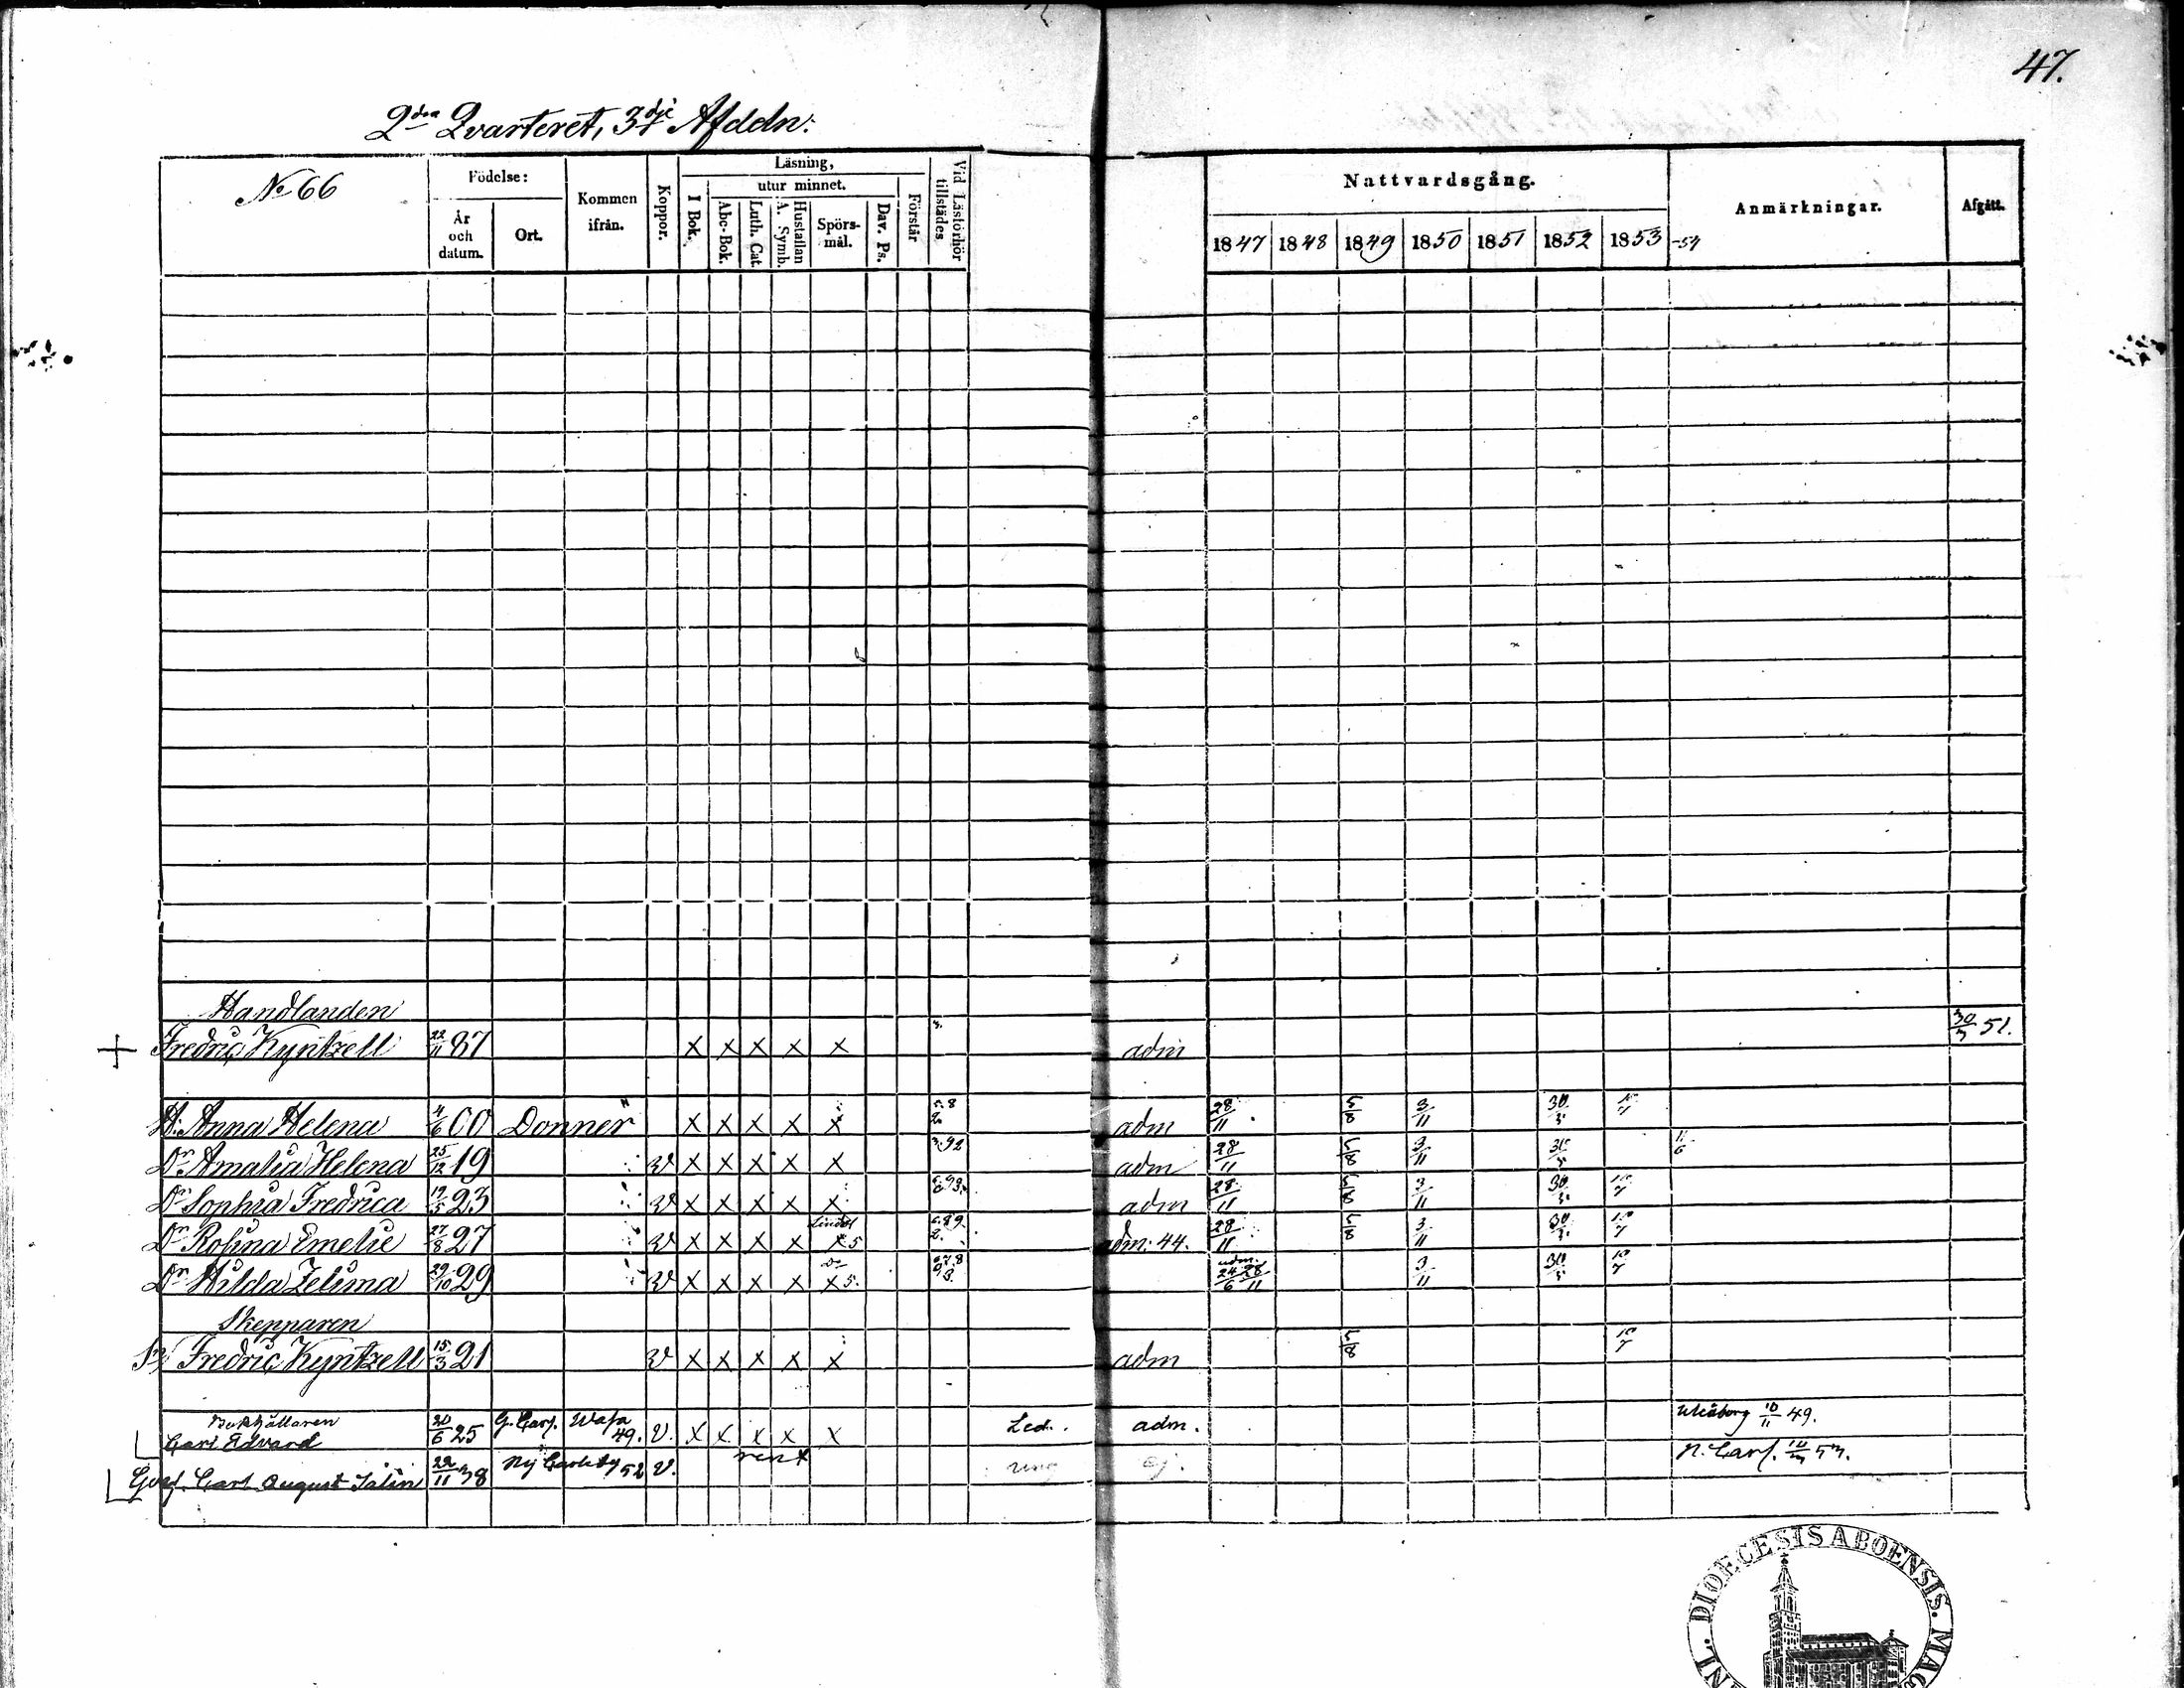 47.
2dra Qvarteret, 3dje Afdeln:
No 66
Födelse:
År och datum.
Ort.
Kommen ifrån.
Koppor.
Läsning,
I Bok.
utur minnet.
Abc-Bok.
Luth. Cat.
Hustaflan A. Symb.
Spörs-mål.
Dav. Ps.
Förstår
Vid Läsförhör tillstädes
Nattvardsgång.
1847 1848 1849 1850 1851 1852 1853 -54
Anmärkningar.
Afgått.
Handlanden
Fredric Kyntzell 22/11 87 x x x x x adm 30/3 51.
H. Anna Helena 4/6 00 Donner x x x x x adm 28/11 5/8 3/11 30/5
Dr Amalia Helena 25/12 19 v x x x x x adm 28/11 5/8 3/11 30/5 11/6
Dr Sophia Fredrica 19/5 23 v x x x x x adm 28/11 5/8 3/11 30/5 10/7
Dr Rosina Emelie 27/8 27 v x x x x x 5 adm. 44. 28/11 5/8 3/11 30/5 10/7
Dr Hilda Zelima 29/10 29 v x x x x x 5. adm. 24/6 28/11 3/11 30/5 10/7
Skepparen
Sn Fredric Kyntzell 15/3 21 v x x x x x adm 5/8 10/7
Bokhållaren
Carl Edvard 20/6 25 G. Carl. Wasa 49. v. x x x x x Led. adm. Uleåborg 10/11 49.
Carl August 22/11 38 Ny Carleby 52 v. ung ej. N. Carl. 53.
DIOECESIS ABOENSIS.